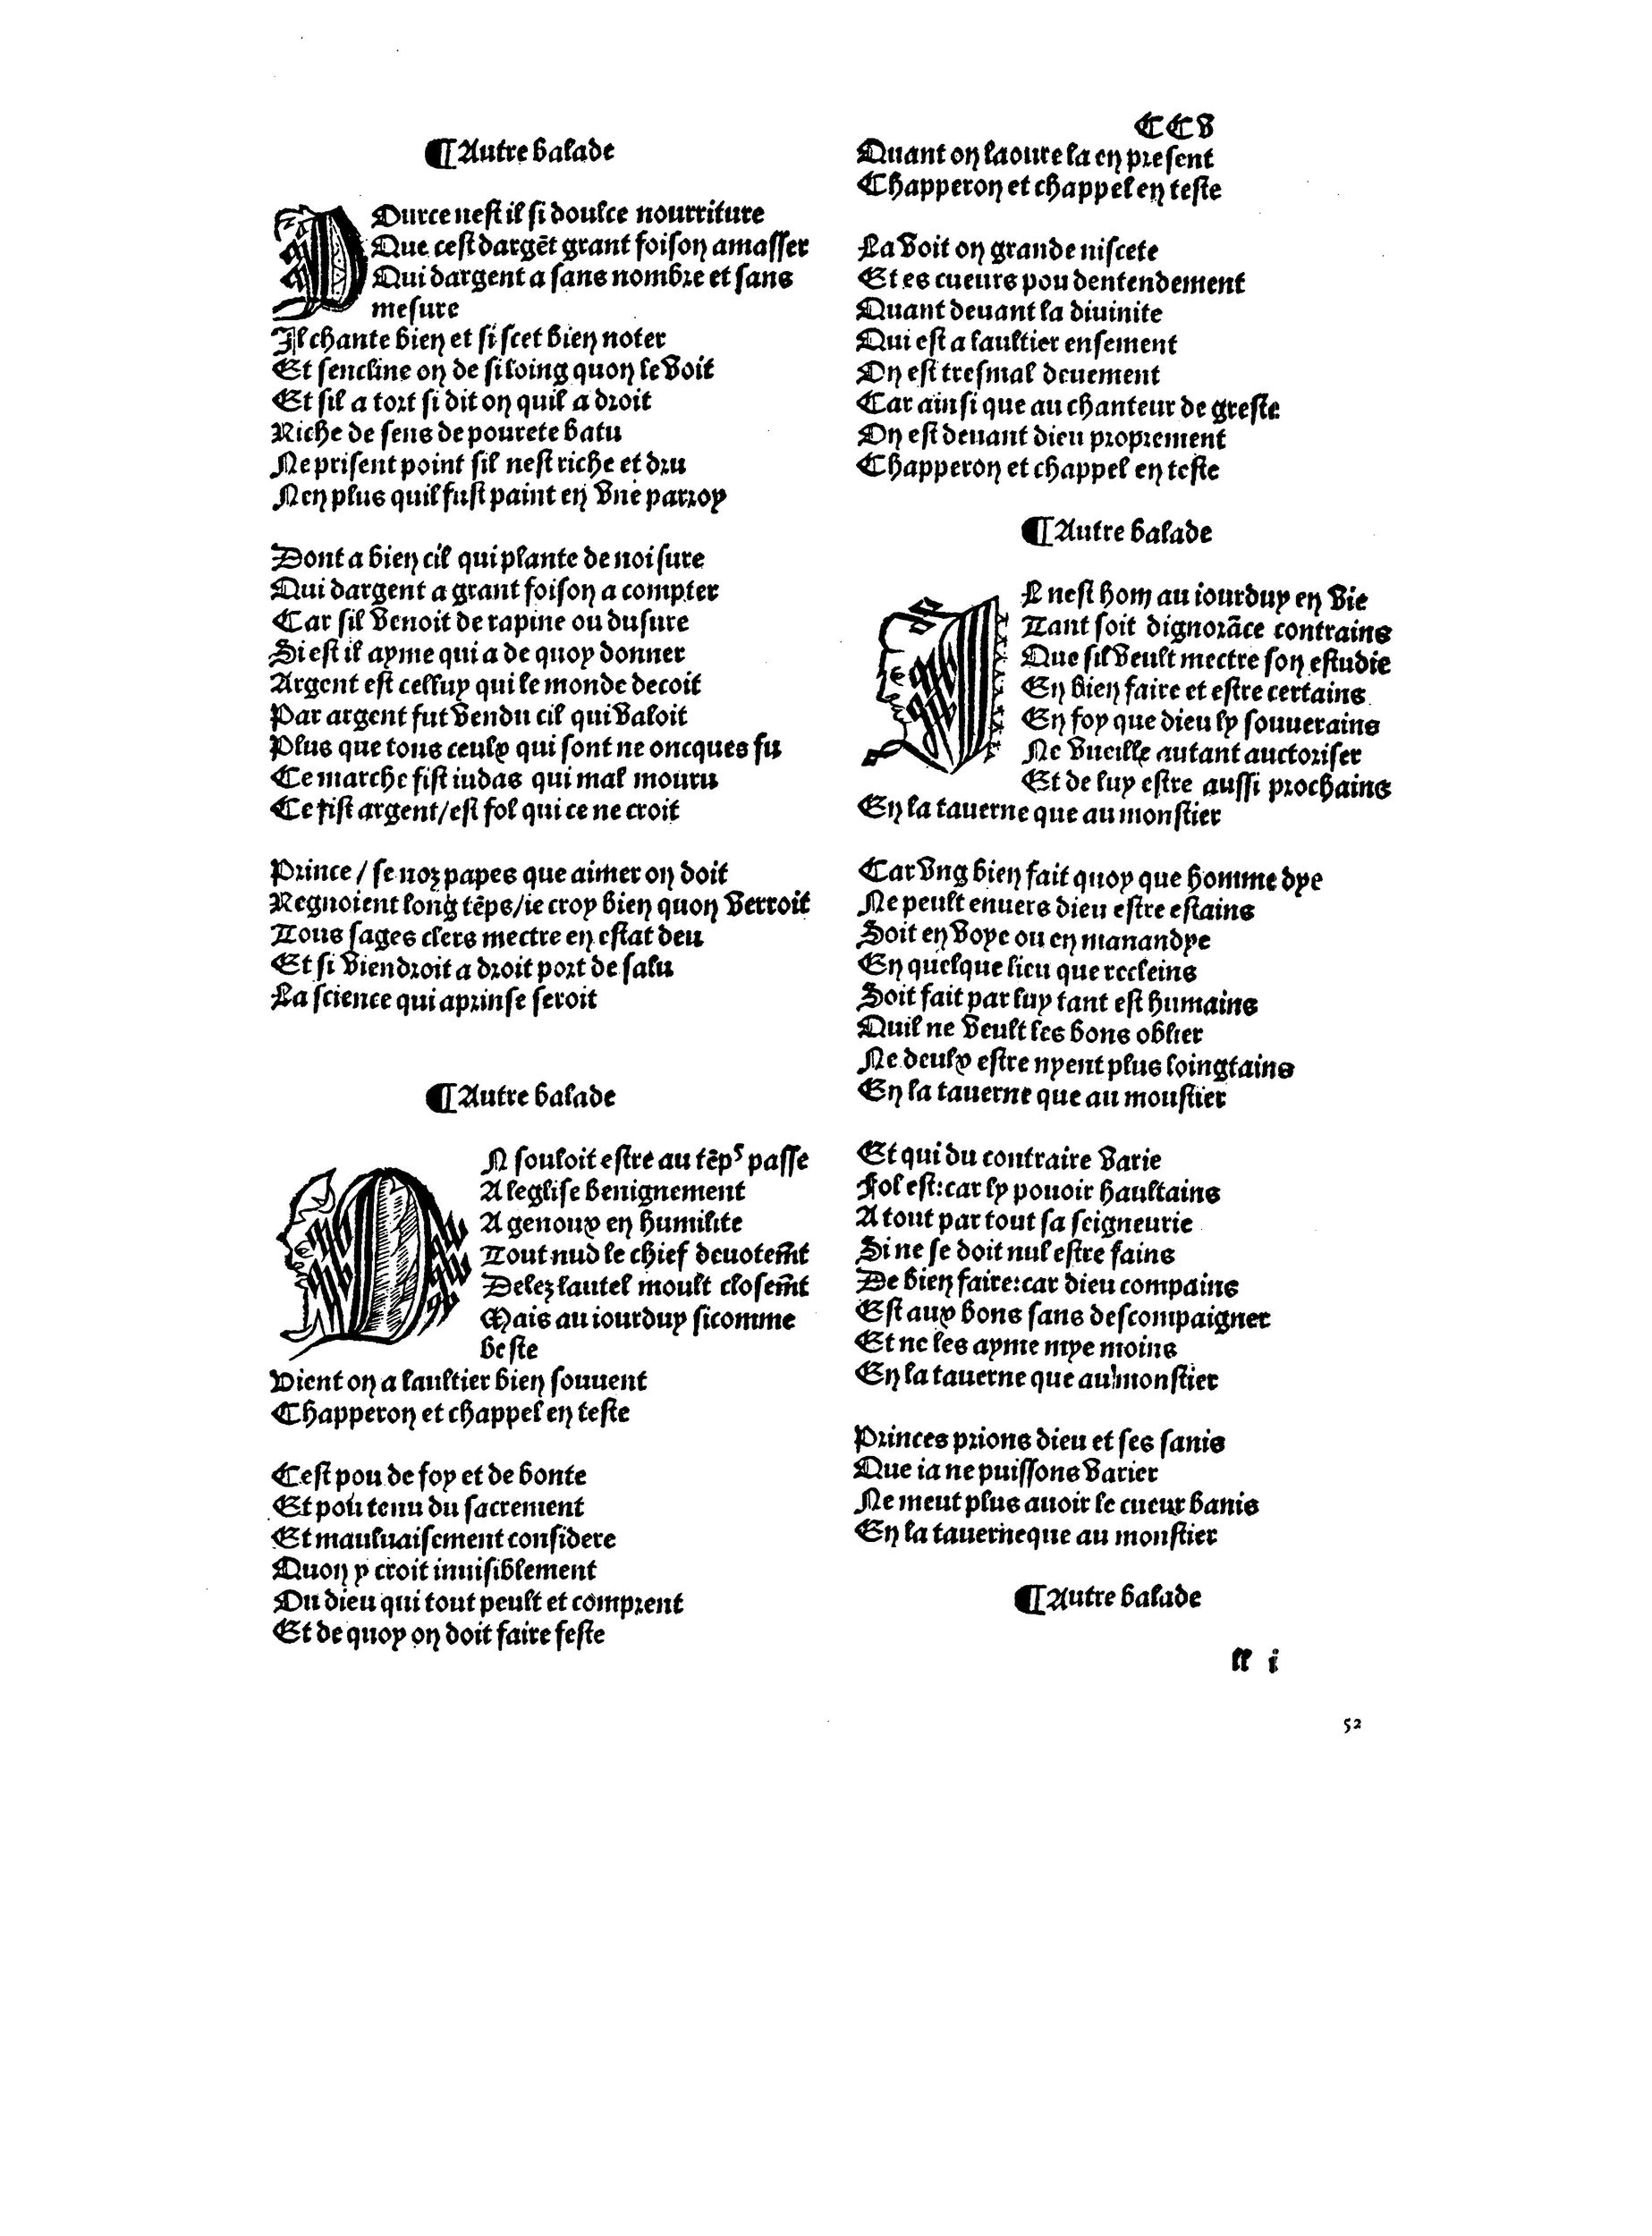 ¶ Autre balade
POurce nest il si doulce nourriture
Que cest dargẽt grant foison amasser
Qui dargent a sans nombre et sans
mesure
Il chante bien et si scet bien noter
Et sencline on de si loing quon le voit
Et sil a tort si dit on quil a droit
Riche de sens de pourete batu
Ne prisent point sil nest riche et dru
Nen plus quil fust paint en vne parroy
Dont a bien cil qui plante de noisure
Qui dargent a grant foison a compter
Car sil venoit de rapine ou dusure
Si est il ayme qui a de quoy donner
Argent est celluy qui le monde decoit
Par argent fut vendu cil qui valoit
Plus que tous ceulx qui sont ne oncques fu
Ce marche fist iudas qui mal mouru
Ce fist argent/est fol qui ce ne croit
Prince / se noz papes que aimer on doit
Regnoient long tẽps/ie croy bien quon verroit
Tous sages clers mectre en estat deu
Et si viendroit a droit port de salu
La science qui aprinse seroit
¶ Autre balade
ON souloit estre au tẽpˢ passe
A leglise benignement
A genoux en humilite
Tout nud le chief deuotem̃t
Delez lautel moult closem̃t
Mais au iourduy sicomme
beste
Vient on a laultier bien souuent
Chapperon et chappel en teste
Cest pou de foy et de bonte
Et pou tenu du sacrement
Et mauluaisement considere
Quon y croit inuisiblement
Du dieu qui tout peult et comprent
Et de quoy on doit faire feste
CCV
Quant on laoure la en present
Chapperon et chappel en teste
La voit on grande niscete
Et es cueurs pou dentendement
Quant deuant la diuinite
Qui est a laultier ensement
On est tresmal deuement
Car ainsi que au chanteur de greste
On est deuant dieu proprement
Chapperon et chappel en teste
¶ Autre balade
IL nest hom au iourduy en vie
Tant soit dignorãce contrains
Que sil veult mectre son estudie
En bien faire et estre certains
En foy que dieu ly souuerains
Ne vueille autant auctoriser
Et de luy estre aussi prochains
En la tauerne que au monstier
Car vng bien fait quoy que homme dye
Ne peult enuers dieu estre estains
Soit en voye ou en manandye
En quelque lieu que recleins
Soit fait par luy tant est humains
Quil ne veult les bons oblier
Ne deulx estre nyent plus loingtains
En la tauerne que au moustier
Et qui du contraire varie
Fol est:car ly pouoir haultains
A tout par tout sa seigneurie
Si ne se doit nul estre fains
De bien faire:car dieu compains
Est aux bons sans descompaigner
Et ne les ayme mye moins
En la tauerne que au monstier
Princes prions dieu et ses sanis
Que ia ne puissons varier
Ne meut plus auoir le cueur banis
En la tauerneque au monstier
¶ Autre balade
ll i
52